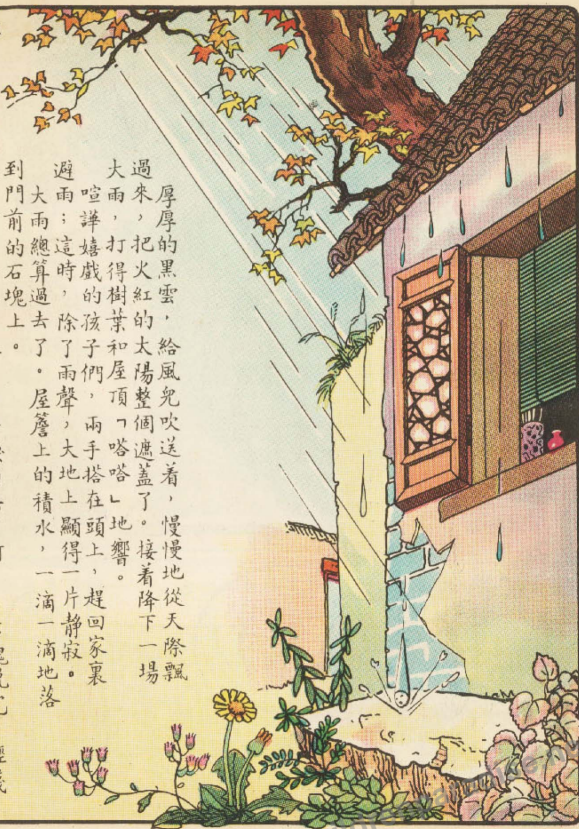 厚厚的黑雲，給風兒吹送着，慢慢地從天際飄
過來，把火紅的太陽整個遮蓋了。接着降下一場
大雨，打得樹葉和屋頂「嗒嗒」地響。
喧譁嬉戲的孩子們，兩手搭在頭上，趕回家裏
避雨；這時，除了雨聲，大地上顯得一片静寂。
大雨總算過去了。屋簷上的積水，一滴一滴地落
到門前的石塊上。